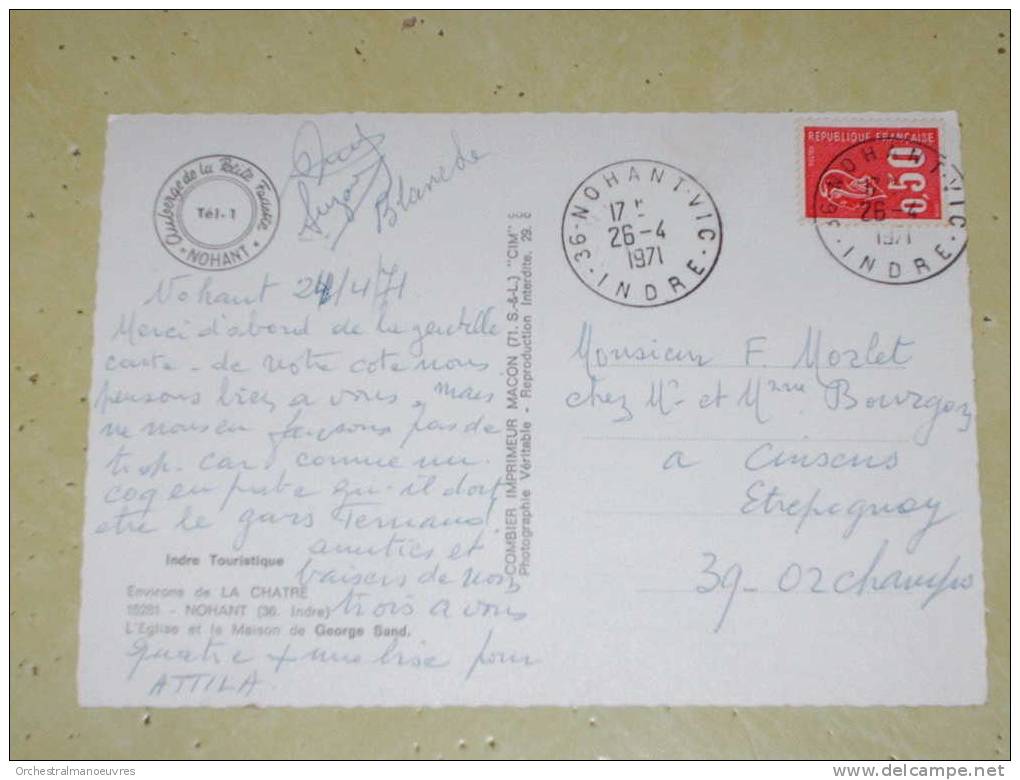 Auberge de la Petite Fadette
Tél- 1
NOHANT
Suzon
Blanche
Nohant 24/4/71
Merci d'abord de la gentille
carte - de votre cote nous
pensons bien a vous, mais
ne nous en faisons pas de
trop. Car comme un
coq en pate qu-il doit
etre le gars Fernand
amities et
baisers de nous
trois a vous
quatre + une bise pour
ATTILA.
Indre Touristique
Environs de LA CHATRE
- NOHANT (36. Indre)
L'Eglise et la Maison de George Sand.
COMBIER IMPRIMEUR MACON (71. S.-&-L.) "CIM"
Photographie Véritable - Reproduction Interdite. 29.
36-NOHANT-VIC
17
26-4
1971
INDRE
RÉPUBLIQUE FRANÇAISE
0,50
36-NOHANT-VIC
26-4
1971
INDRE
Monsieur F. Morlet
chez Mr et Mme Bourgon
a
Etrepignay
39_Orchamps
Orchestralmanoeuvres
www.delcampe.net